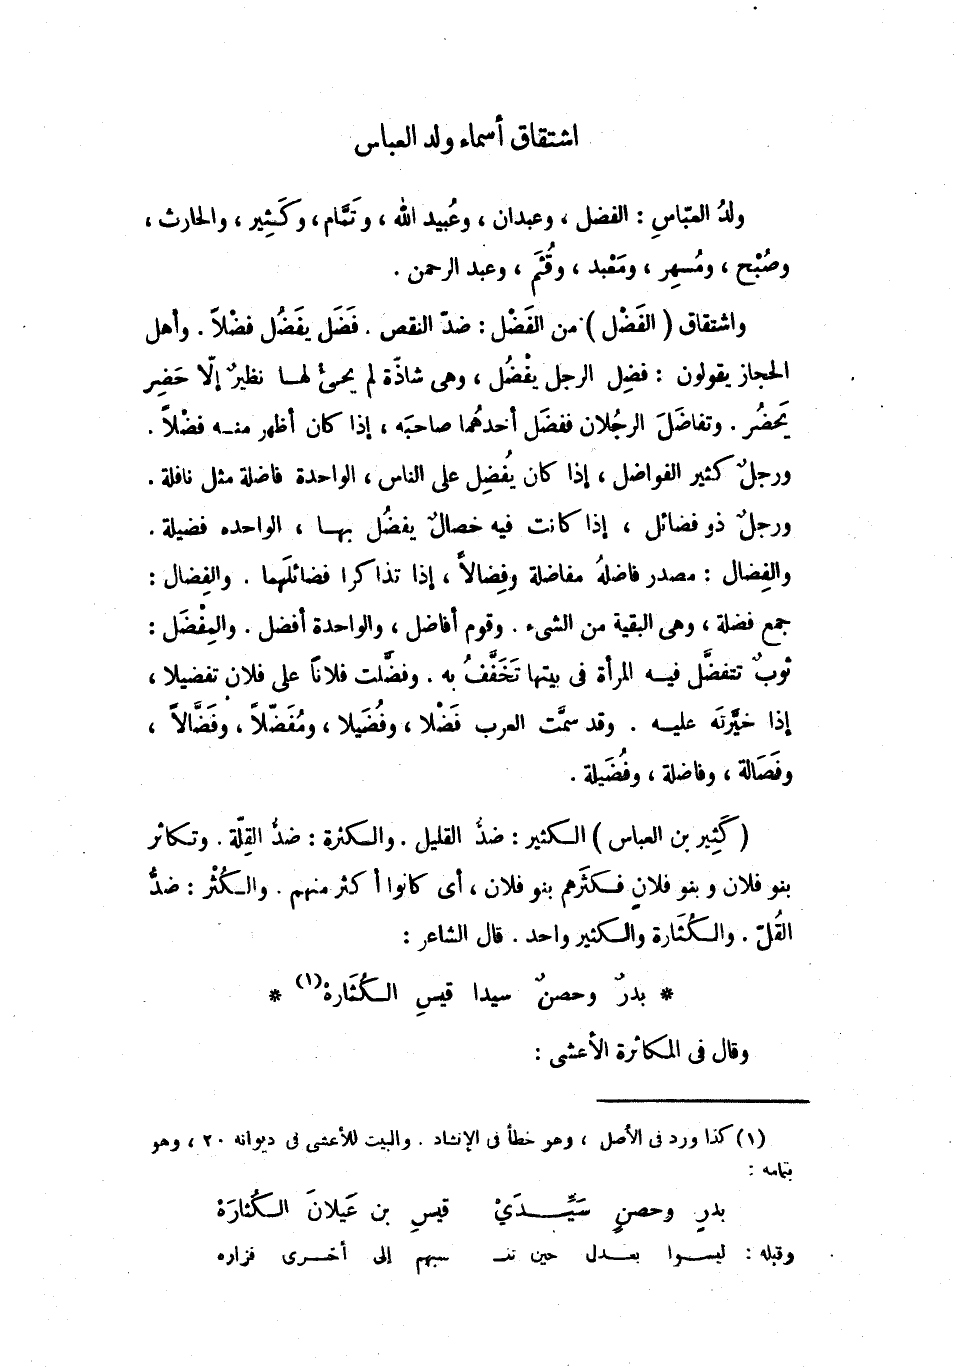 اشتقاق أسماء ولد العباس
ولدُ العبّاسِ : الفضل ، وعبدان ، وعُبيد الله ، وتَمَّام ، وكَثِير ، والحارث ،
وصُبْح ، ومُسهِر ، ومَعْبد ، وقُثَم ، وعبد الرحمن .
واشتقاق ( الفَضْل ) من الفَضْل : ضدّ النقص . فَضَل يفَضُل فضْلاً . وأهل
الحجاز يقولون : فضِل الرجل يفْضُل ، وهى شاذّة لم يجئْ لهـا نظيرٌ إلّا حَضِر
يَحضُر . وتفاضَلَ الرجُلان ففضَل أحدهُما صاحبَه ، إذا كان أظهر منـه فضْلاً .
ورجلٌ كثير الفواضل ، إذا كان يُفضِل على الناس ، الواحدة فاضلة مثل نافلة .
ورجلٌ ذو فضائل ، إذا كانت فيه خصالٌ يفضُل بهـا ، الواحده فضيلة .
والفِضال : مصدر فاضلهُ مفاضلة وفِضالاً ، إذا تذاكرا فضائلَهما . والفِضال :
جمع فضلة ، وهى البقية من الشىء . وقوم أفاضل ، والواحدة أفضل . والمِفْضَل :
ثوبٌ تتفضَّل فيـه المرأة فى بيتها تَخَفَّفُ به . وفضَّلت فلاناً على فلانٍ تفضيلا ،
إذا خيَّرتَه عليـه . وقد سمَّت العرب فَضْلا ، وفُضَيلا ، ومُفَضّلاً ، وفَضَّالاً ،
وفَضَالة ، وفاضلة ، وفُضَيلة .
( كَثِير بن العباس ) الـكثير : ضدُّ القليل . والـكثرة : ضدُّ القِلّة . وتكاثر
بنو فلان و بنو فلانٍ فـكثَرهم بنو فلان ، أى كانوا أكثر منهم . والـكُثْر : ضدُّ
القُلّ . والـكُثَارة والـكثير واحد . قال الشاعر :
* بدرٌ وحصنٌ سيدا قيسِ الـكُثَارهْ(١) *
وقال فى المكاثرة الأعشى :
(١) كذا ورد فى الأصل ، وهو خطأ فى الإنشاد . والبيت للأعشى فى ديوانه ٢٠ ، وهو
بتمامه :
بدرٍ وحصنٍ سَيِّـــدَيْ قيسِ بن عَيلانَ الـكُثارَهْ
وقبله : ليســوا بعـدل حين تنـ ـسبهم إلى أخـرى فزاره